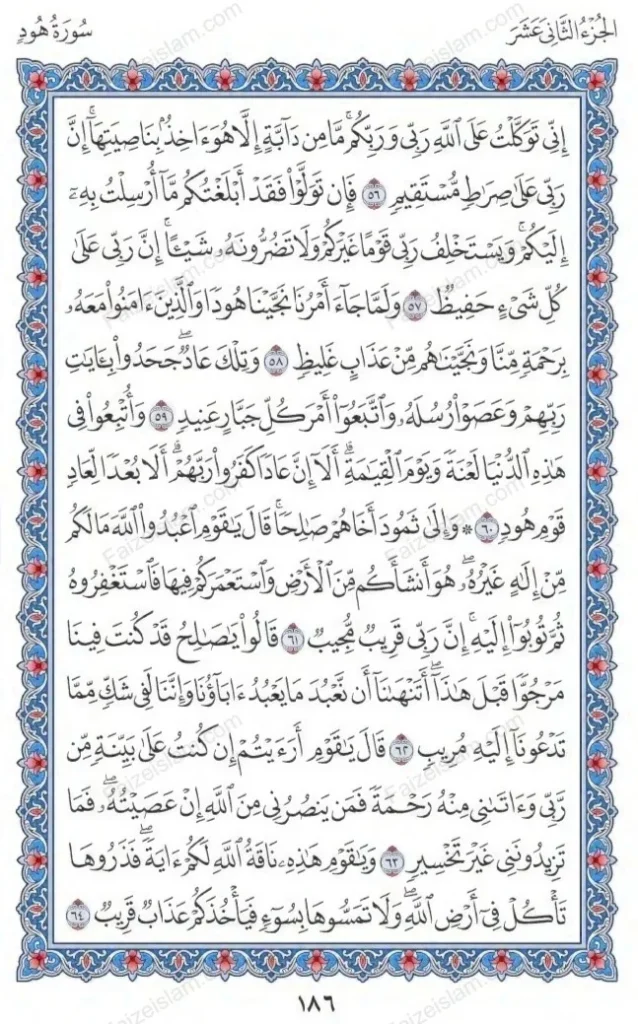 الجُزْءُ الثَّانِي عَشَرَ
سُورَةُ هُودٍ
إِنِّي تَوَكَّلْتُ عَلَى ٱللَّهِ رَبِّي وَرَبِّكُمۚ مَّا مِن دَآبَّةٍ إِلَّا هُوَ ءَاخِذُۢ بِنَاصِيَتِهَآۚ إِنَّ
رَبِّي عَلَىٰ صِرَٰطٍ مُّسْتَقِيمٍ ٥٦ فَإِن تَوَلَّوْا۟ فَقَدْ أَبْلَغْتُكُم مَّآ أُرْسِلْتُ بِهِۦٓ
إِلَيْكُمْۚ وَيَسْتَخْلِفُ رَبِّي قَوْمًا غَيْرَكُمْ وَلَا تَضُرُّونَهُۥ شَيْـًٔاۚ إِنَّ رَبِّي عَلَىٰ
كُلِّ شَيْءٍ حَفِيظٌ ٥٧ وَلَمَّا جَآءَ أَمْرُنَا نَجَّيْنَا هُودًا وَٱلَّذِينَ ءَامَنُوا۟ مَعَهُۥ
بِرَحْمَةٍ مِّنَّا وَنَجَّيْنَٰهُم مِّنْ عَذَابٍ غَلِيظٍ ٥٨ وَتِلْكَ عَادٌۖ جَحَدُوا۟ بِـَٔايَٰتِ
رَبِّهِمْ وَعَصَوْا۟ رُسُلَهُۥ وَٱتَّبَعُوٓا۟ أَمْرَ كُلِّ جَبَّارٍ عَنِيدٍ ٥٩ وَأُتْبِعُوا۟ فِي
هَٰذِهِ ٱلدُّنْيَا لَعْنَةً وَيَوْمَ ٱلْقِيَٰمَةِۗ أَلَآ إِنَّ عَادًا كَفَرُوا۟ رَبَّهُمْۗ أَلَا بُعْدًا لِّعَادٍ
قَوْمِ هُودٍ ٦٠ ۞ وَإِلَىٰ ثَمُودَ أَخَاهُمْ صَٰلِحًاۚ قَالَ يَٰقَوْمِ ٱعْبُدُوا۟ ٱللَّهَ مَا لَكُم
مِّنْ إِلَٰهٍ غَيْرُهُۥۖ هُوَ أَنشَأَكُم مِّنَ ٱلْأَرْضِ وَٱسْتَعْمَرَكُمْ فِيهَا فَٱسْتَغْفِرُوهُ
ثُمَّ تُوبُوٓا۟ إِلَيْهِۚ إِنَّ رَبِّي قَرِيبٌ مُّجِيبٌ ٦١ قَالُوا۟ يَٰصَٰلِحُ قَدْ كُنتَ فِينَا
مَرْجُوًّا قَبْلَ هَٰذَآۖ أَتَنْهَىٰنَآ أَن نَّعْبُدَ مَا يَعْبُدُ ءَابَآؤُنَا وَإِنَّنَا لَفِي شَكٍّ مِّمَّا
تَدْعُونَآ إِلَيْهِ مُرِيبٍ ٦٢ قَالَ يَٰقَوْمِ أَرَءَيْتُمْ إِن كُنتُ عَلَىٰ بَيِّنَةٍ مِّن
رَّبِّي وَءَاتَىٰنِي مِنْهُ رَحْمَةً فَمَن يَنصُرُنِي مِنَ ٱللَّهِ إِنْ عَصَيْتُهُۥۖ فَمَا
تَزِيدُونَنِي غَيْرَ تَخْسِيرٍ ٦٣ وَيَٰقَوْمِ هَٰذِهِۦ نَاقَةُ ٱللَّهِ لَكُمْ ءَايَةًۖ فَذَرُوهَا
تَأْكُلْ فِيٓ أَرْضِ ٱللَّهِۖ وَلَا تَمَسُّوهَا بِسُوٓءٍ فَيَأْخُذَكُمْ عَذَابٌ قَرِيبٌ ٦٤
١٨٦
Faizeislam.com